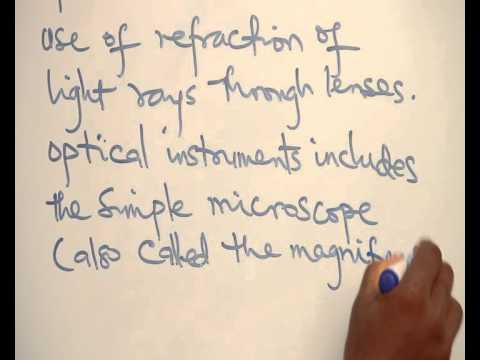 use of refraction of
light rays through lenses.
optical instruments includes
the simple microscope
(also called the magnif